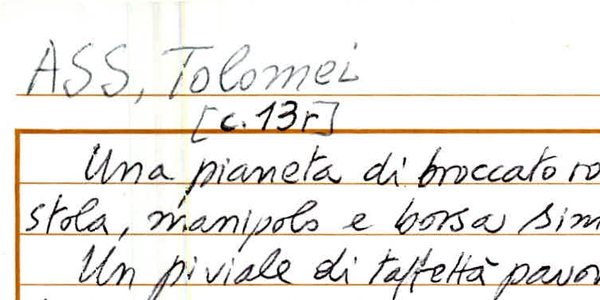 ASS, Tolomei
[c.13r]
Una pianeta di broccato ro
stola, manipolo e borsa sim
Un piviale di taffettà pavon